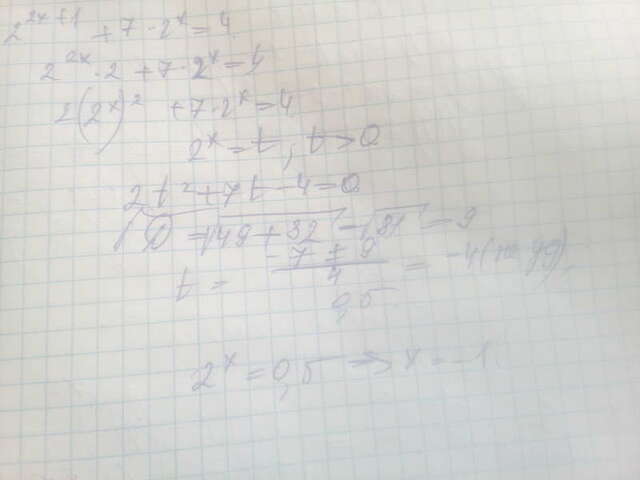 2^{2x+1} + 7 · 2^x = 4
2^{2x} · 2 + 7 · 2^x = 4
2(2^x)^2 + 7 · 2^x = 4
2^x = t, t > 0
2t^2 + 7t - 4 = 0
√D = √49 + 32 = √81 = 9
t = (-7 ± 9)/4 = -4 (не уд)
0,5
2^x = 0,5 => x = -1